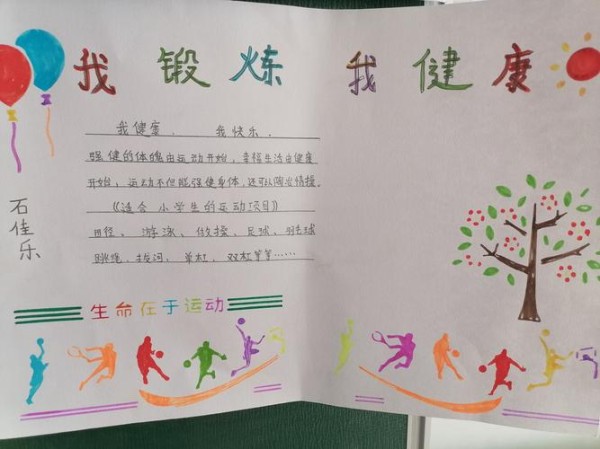 我锻炼 我健康
我健康、 我快乐.
强健的体魄由运动开始，幸福生活由健康
开始，运动不但能强健身体，还可以陶业情操。
《适合小学生的运动项目》
田径、游泳、做操、足球、羽毛球
跳绳、拔河、单杠、双杠等等……
石佳乐
生命在于运动